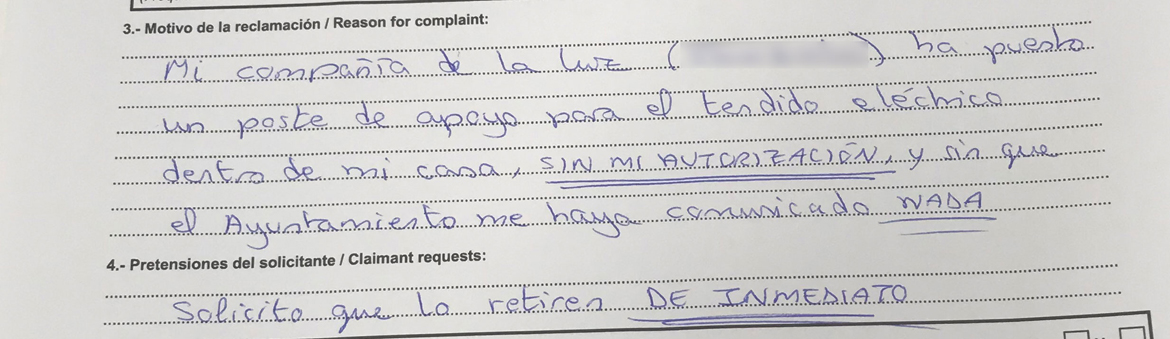 3.- Motivo de la reclamación / Reason for complaint:
Mi compañía de la luz ( ) ha puesto
un poste de apoyo para el tendido eléctrico
dentro de mi casa, SIN MI AUTORIZACIÓN, y sin que
el Ayuntamiento me haya comunicado NADA
4.- Pretensiones del solicitante / Claimant requests:
Solicito que lo retiren DE INMEDIATO